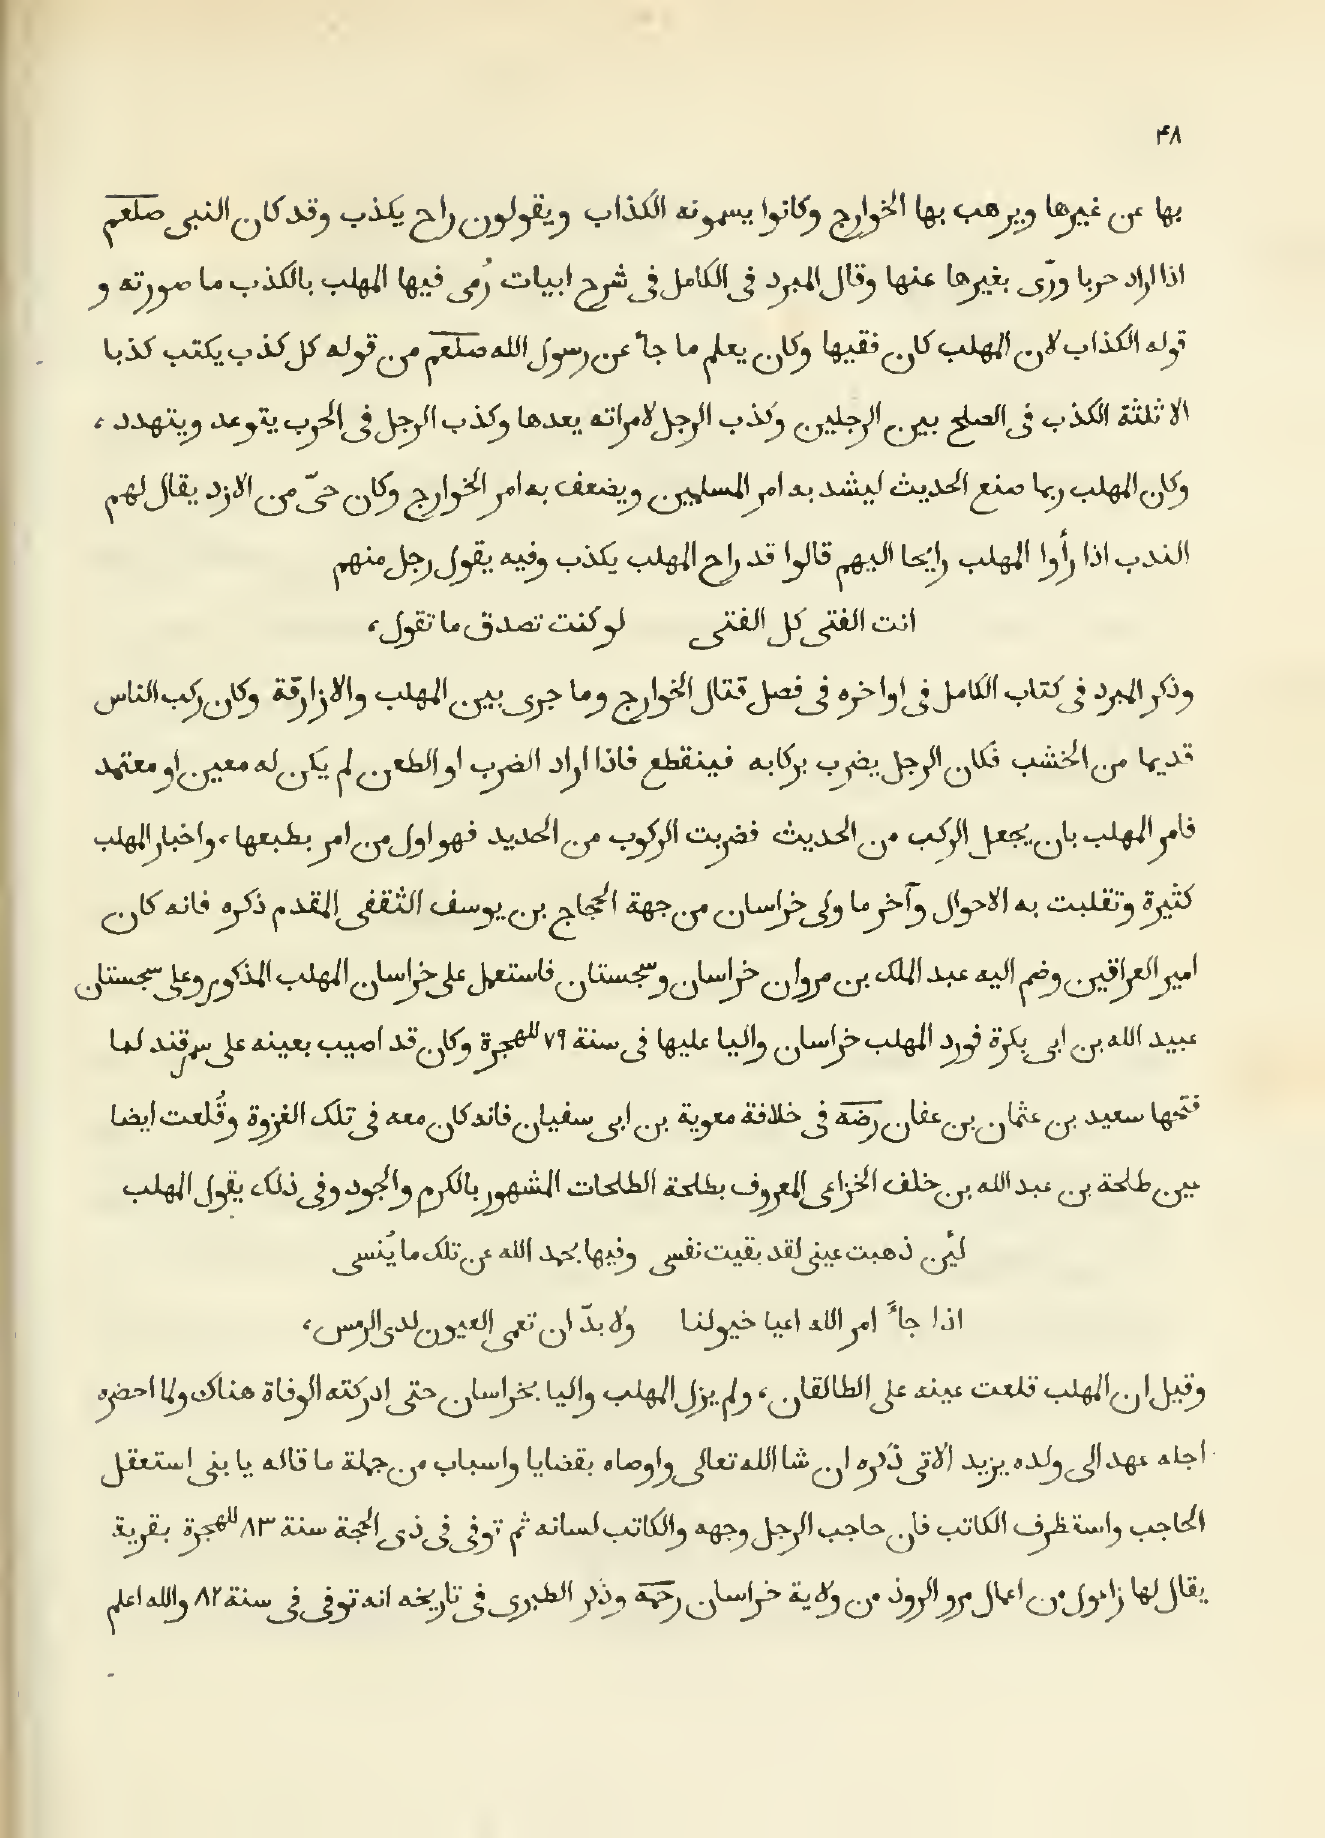 ٤٨
بها عن غيرها ويرهب بها الخوارج وكانوا يسمونه الكذاب ويقولون راح يكذب وقد كان النبى صلعم
اذا اراد حربا ورّى بغيرها عنها وقال المبرد فى الكامل فى شرح ابيات رُمى فيها المهلب بالكذب ما صورته و
قوله الكذاب لان المهلب كان فقيها وكان يعلم ما جاْ عن رسول الله صلعم من قوله كل كذب يكتب كذبا
الا ثلثة الكذب فى الصلح بين الرجلين وكذب الرجل لامراته يعدها وكذب الرجل فى الحرب يتوعد ويتهدد ،
وكان المهلب ربما صنع الحديث ليشد به امر المسلمين ويضعف به امر الخوارج وكان حىّ من الازد يقال لهم
الندب اذا رأوا المهلب رايحًا اليهم قالوا قد راح المهلب يكذب وفيه يقول رجل منهم
انت الفتى كل الفتى لو كنت تصدق ما تقول ،
وذكر المبرد فى كتاب الكامل فى اواخره فى فصل قتال الخوارج وما جرى بين المهلب والازارقة وكان ركب الناس
قديما من الخشب فكان الرجل يضرب بركابه فينقطع فاذا اراد الضرب او الطعن لم يكن له معين او معتمد
فامر المهلب بان يجعل الركب من الحديث فضربت الركوب من الحديد فهو اول من امر بطبعها ، واخبار المهلب
كثيرة وتقلبت به الاحوال وآخر ما ولى خراسان من جهة الحجاج بن يوسف الثقفى المقدم ذكره فانه كان
امير العراقين وضم اليه عبد الملك بن مروان خراسان وسجستان فاستعمل على خراسان المهلب المذكور وعلى سجستان
عبيد الله بن ابى بكرة فورد المهلب خراسان واليا عليها فى سنة ٧٩ للهجرة وكان قد اصيب بعينه على سمرقند لما
فتحها سعيد بن عثمان بن عفان رضه فى خلافة معوية بن ابى سفيان فانه كان معه فى تلك الغزوة وقُلعت ايضا
عين طلحة بن عبد الله بن خلف الخزاعى المعروف بطلحة الطلحات المشهور بالكرم والجود وفى ذلك يقول المهلب
لئن ذهبت عينى لقد بقيت نفسى وفيها بحمد الله عن تلك ما يُنسى
اذا جاْ امر الله اعيا خيولنا ولا بدّ ان تعمى العيون لدى الرمس ،
وقيل ان المهلب قلعت عينه على الطالقان ، ولم يزل المهلب واليا بخراسان حتى ادركته الوفاة هناك ولما احضره
اجله عهد الى ولده يزيد الاتى ذكره ان شا الله تعالى واوصاه بقضايا واسباب من جملة ما قاله يا بنى استعقل
الحاجب واستظرف الكاتب فان حاجب الرجل وجهه والكاتب لسانه ثم توفى فى ذى الحجة سنة ٨٣ للهجرة بقرية
يقال لها زاغول من اعمال مرو الروذ من ولاية خراسان رحمه وذكر الطبرى فى تاريخه انه توفى فى سنة ٨٢ والله اعلم